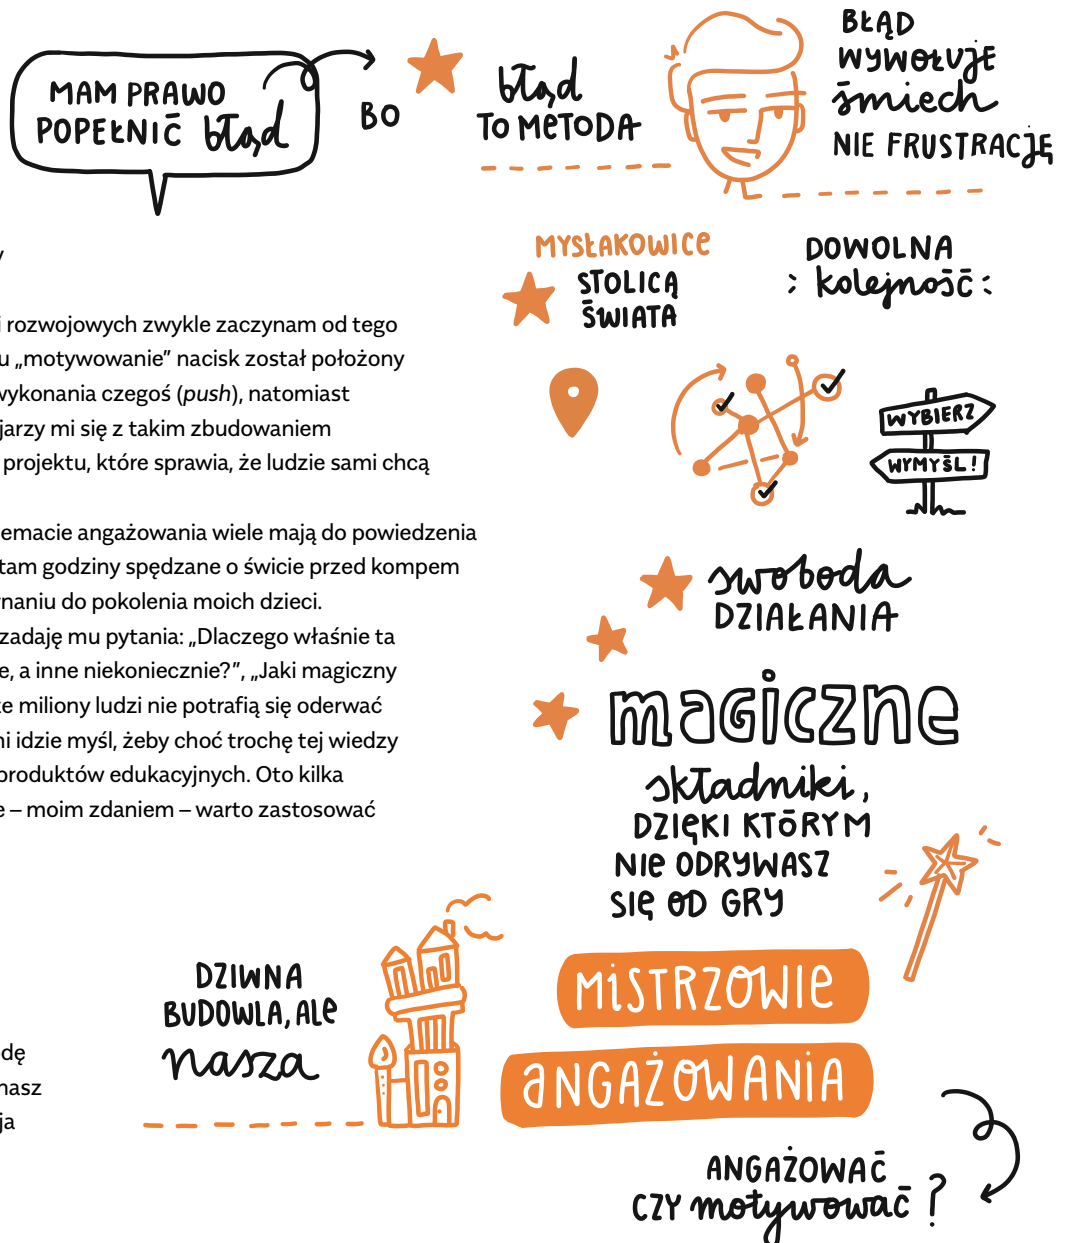 MAM PRAWO
POPEŁNIĆ błąd
BO
błąd
TO METODA
BŁĄD
WYWOŁUJE
śmiech
NIE FRUSTRACJĘ
MYSŁAKOWICE
STOLICĄ
ŚWIATA
DOWOLNA
kolejność
WYBIERZ
WYMYŚL!
swoboda
DZIAŁANIA
magiczne
składniki,
DZIĘKI KTÓRYM
NIE ODRYWASZ
SIĘ OD GRY
MISTRZOWIE
ANGAŻOWANIA
ANGAŻOWAĆ
CZY motywować?
DZIWNA
BUDOWLA, ALE
nasza
y
i rozwojowych zwykle zaczynam od tego
u „motywowanie” nacisk został położony
wykonania czegoś (push), natomiast
jarzy mi się z takim zbudowaniem
projektu, które sprawia, że ludzie sami chcą
emacie angażowania wiele mają do powiedzenia
tam godziny spędzane o świcie przed kompem
ynaniu do pokolenia moich dzieci.
zadaję mu pytania: „Dlaczego właśnie ta
e, a inne niekoniecznie?”, „Jaki magiczny
że miliony ludzi nie potrafią się oderwać
ni idzie myśl, żeby choć trochę tej wiedzy
produktów edukacyjnych. Oto kilka
e – moim zdaniem – warto zastosować
dę
nasz
ja